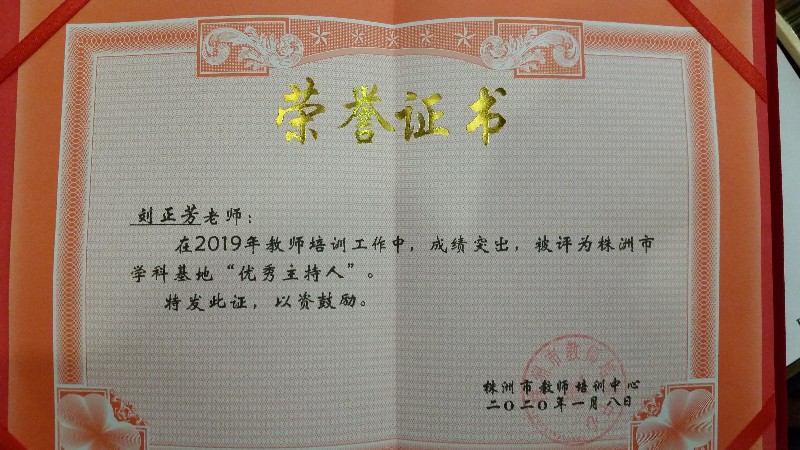 荣誉证书
刘正芳老师：
在2019年教师培训工作中，成绩突出，被评为株洲市
学科基地“优秀主持人”。
特发此证，以资鼓励。
株洲市教师培训中心
二〇二〇年一月八日